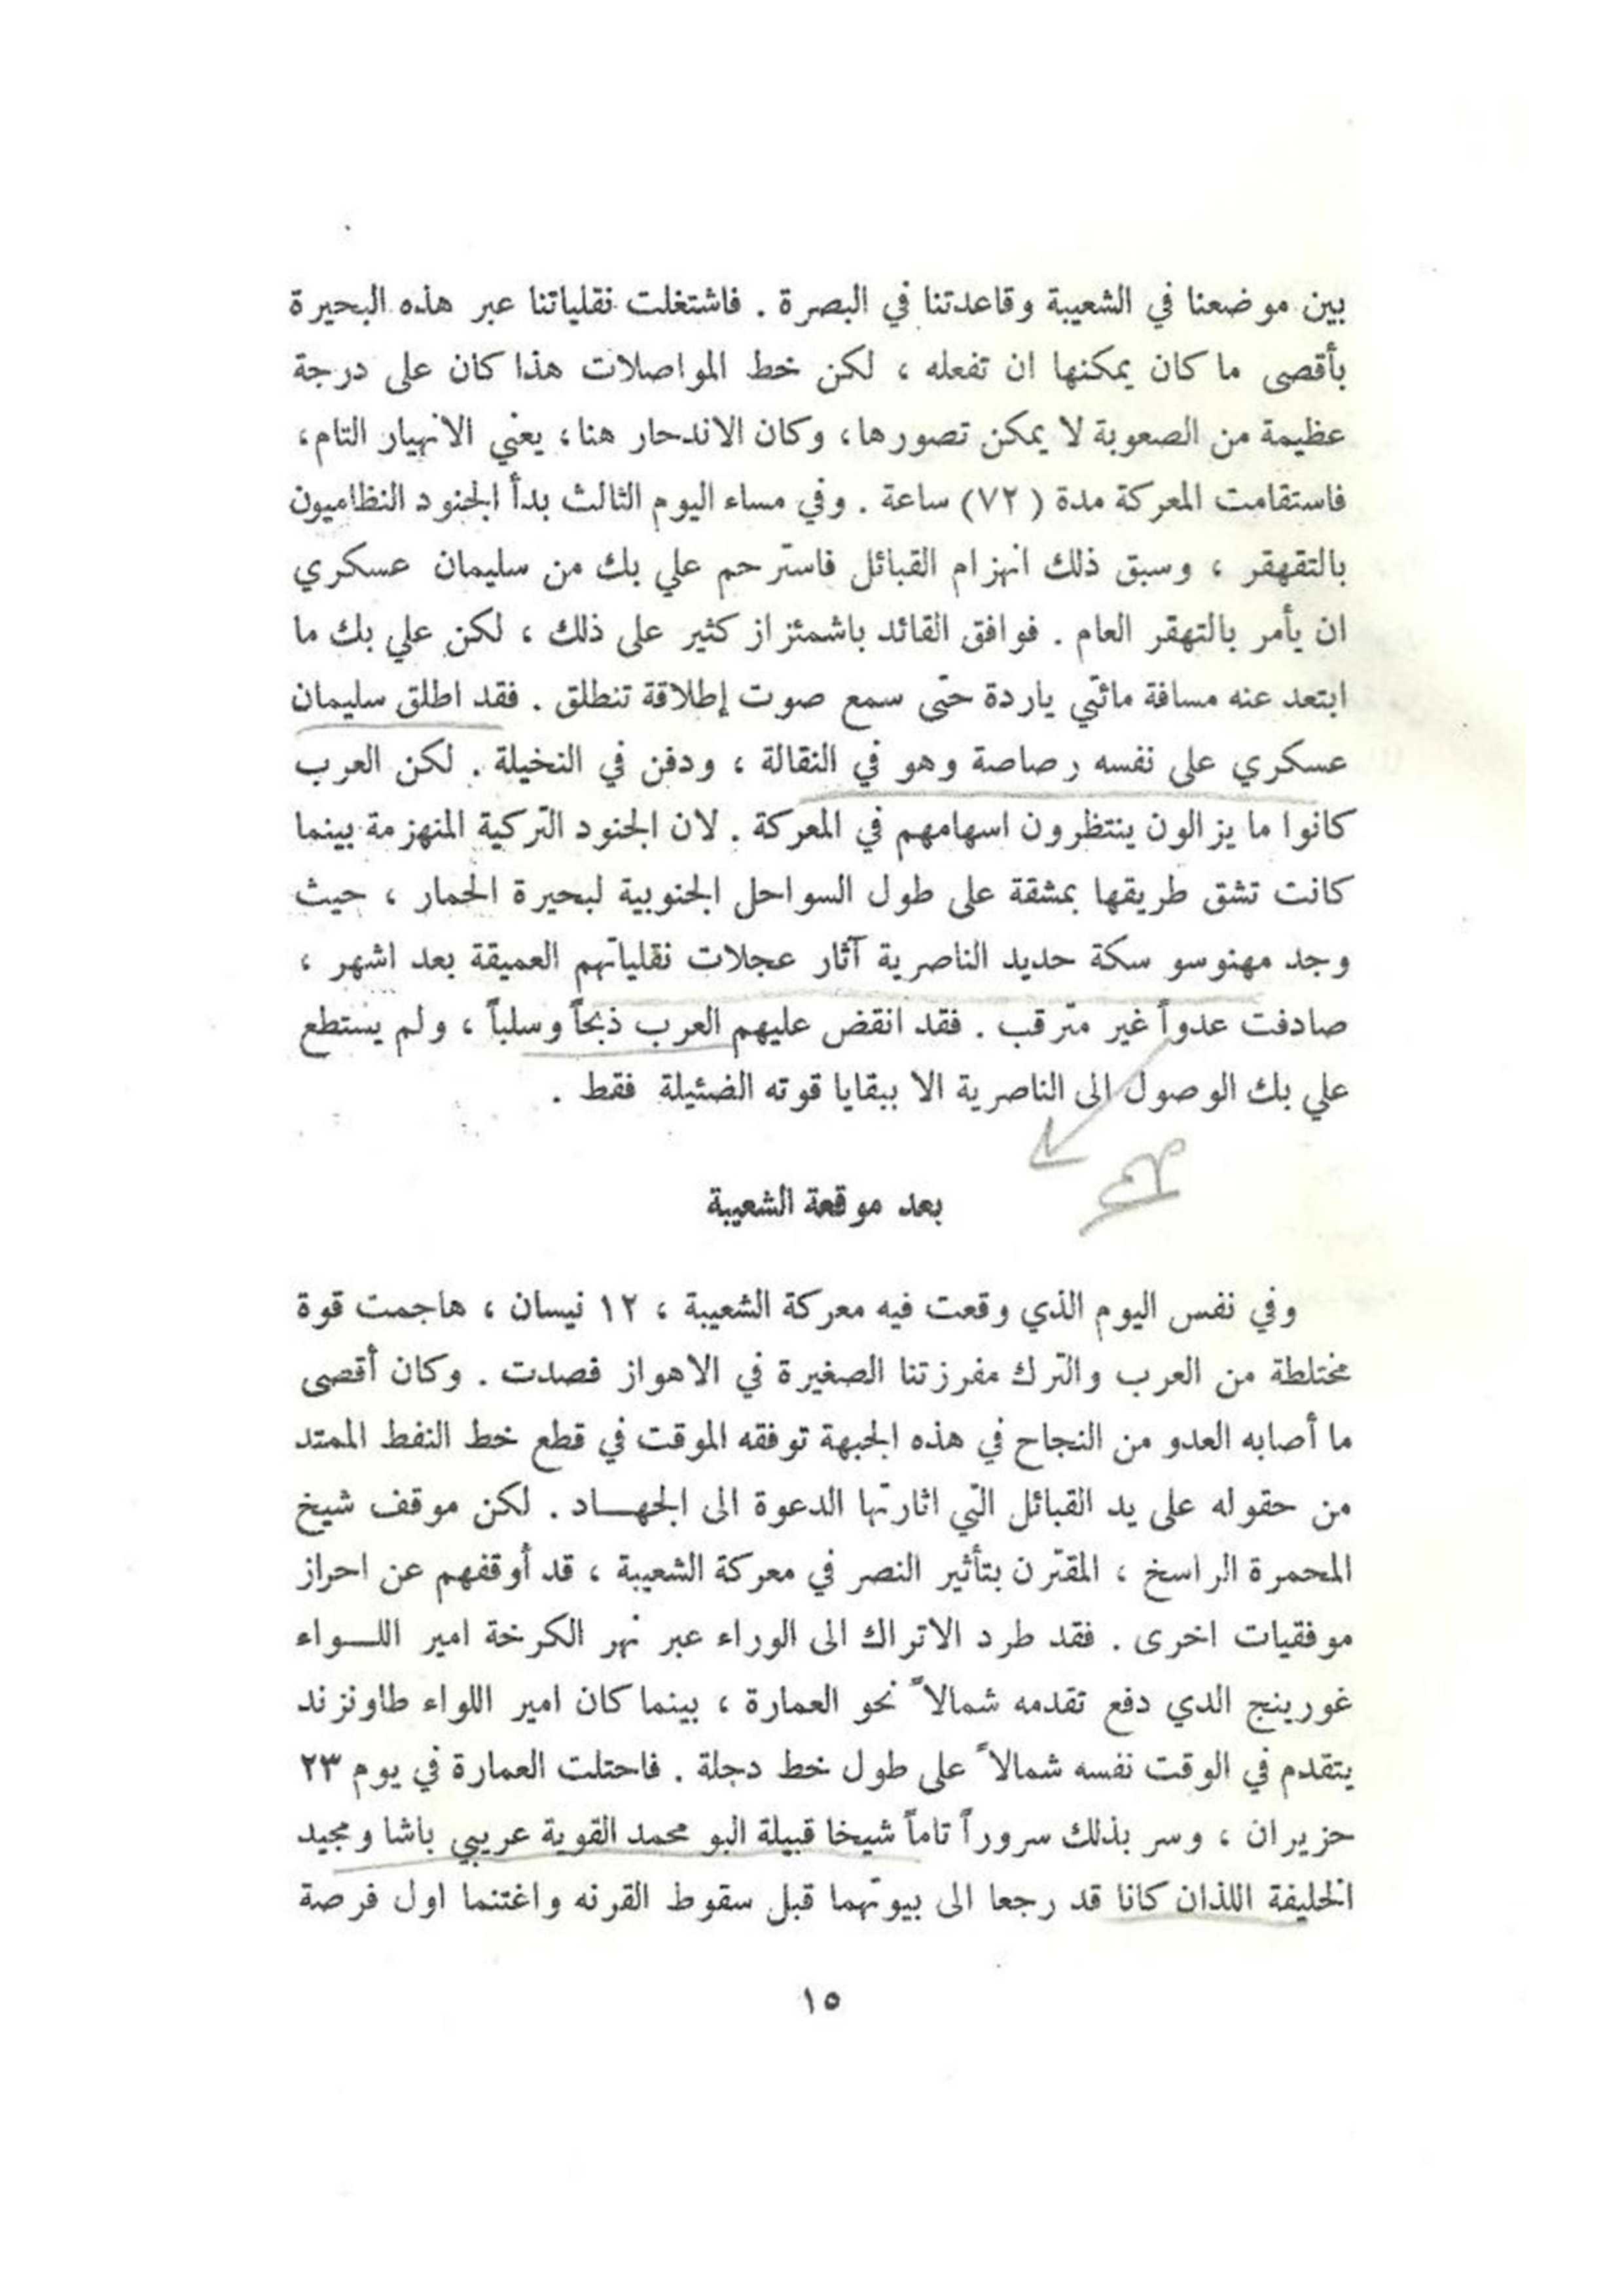 بين موضعنا في الشعيبة وقاعدتنا في البصرة . فاشتغلت نقلياتنا عبر هذه البحيرة
بأقصى ما كان يمكنها ان تفعله ، لكن خط المواصلات هذا كان على درجة
عظيمة من الصعوبة لا يمكن تصورها، وكان الاندحار هنا، يعني الانهيار التام،
فاستقامت المعركة مدة (٧٢) ساعة . وفي مساء اليوم الثالث بدأ الجنود النظاميون
بالتقهقر ، وسبق ذلك انهزام القبائل فاسترحم علي بك من سليمان عسكري
ان يأمر بالتهقر العام . فوافق القائد باشمئزاز كثير على ذلك ، لكن علي بك ما
ابتعد عنه مسافة مائتي ياردة حتى سمع صوت إطلاقة تنطلق . فقد اطلق سليمان
عسكري على نفسه رصاصة وهو في النقالة ، ودفن في النخيلة . لكن العرب
كانوا ما يزالون ينتظرون اسهامهم في المعركة . لان الجنود التركية المنهزمة بينما
كانت تشق طريقها بمشقة على طول السواحل الجنوبية لبحيرة الحمار ، حيث
وجد مهنوسو سكة حديد الناصرية آثار عجلات نقلياتهم العميقة بعد اشهر ،
صادفت عدواً غير مترقب . فقد انقض عليهم العرب ذبحاً وسلباً ، ولم يستطع
علي بك الوصول الى الناصرية الا ببقايا قوته الضئيلة فقط .
بعد موقعة الشعيبة
وفي نفس اليوم الذي وقعت فيه معركة الشعيبة ، ١٢ نيسان ، هاجمت قوة
مختلطة من العرب والترك مفرزتنا الصغيرة في الاهواز فصدت . وكان أقصى
ما أصابه العدو من النجاح في هذه الجبهة توفقه الموقت في قطع خط النفط الممتد
من حقوله على يد القبائل التي اثارتها الدعوة الى الجهـــاد . لكن موقف شيخ
المحمرة الراسخ ، المقترن بتأثير النصر في معركة الشعيبة ، قد أوقفهم عن احراز
موفقيات اخرى . فقد طرد الاتراك الى الوراء عبر نهر الكرخة امير اللــواء
غورينج الذي دفع تقدمه شمالاً نحو العمارة ، بينما كان امير اللواء طاونزند
يتقدم في الوقت نفسه شمالاً على طول خط دجلة . فاحتلت العمارة في يوم ٢٣
حزيران ، وسر بذلك سروراً تاماً شيخا قبيلة البو محمد القوية عريبي باشا ومجيد
الخليفة اللذان كانا قد رجعا الى بيوتهما قبل سقوط القرنه واغتنما اول فرصة
١٥